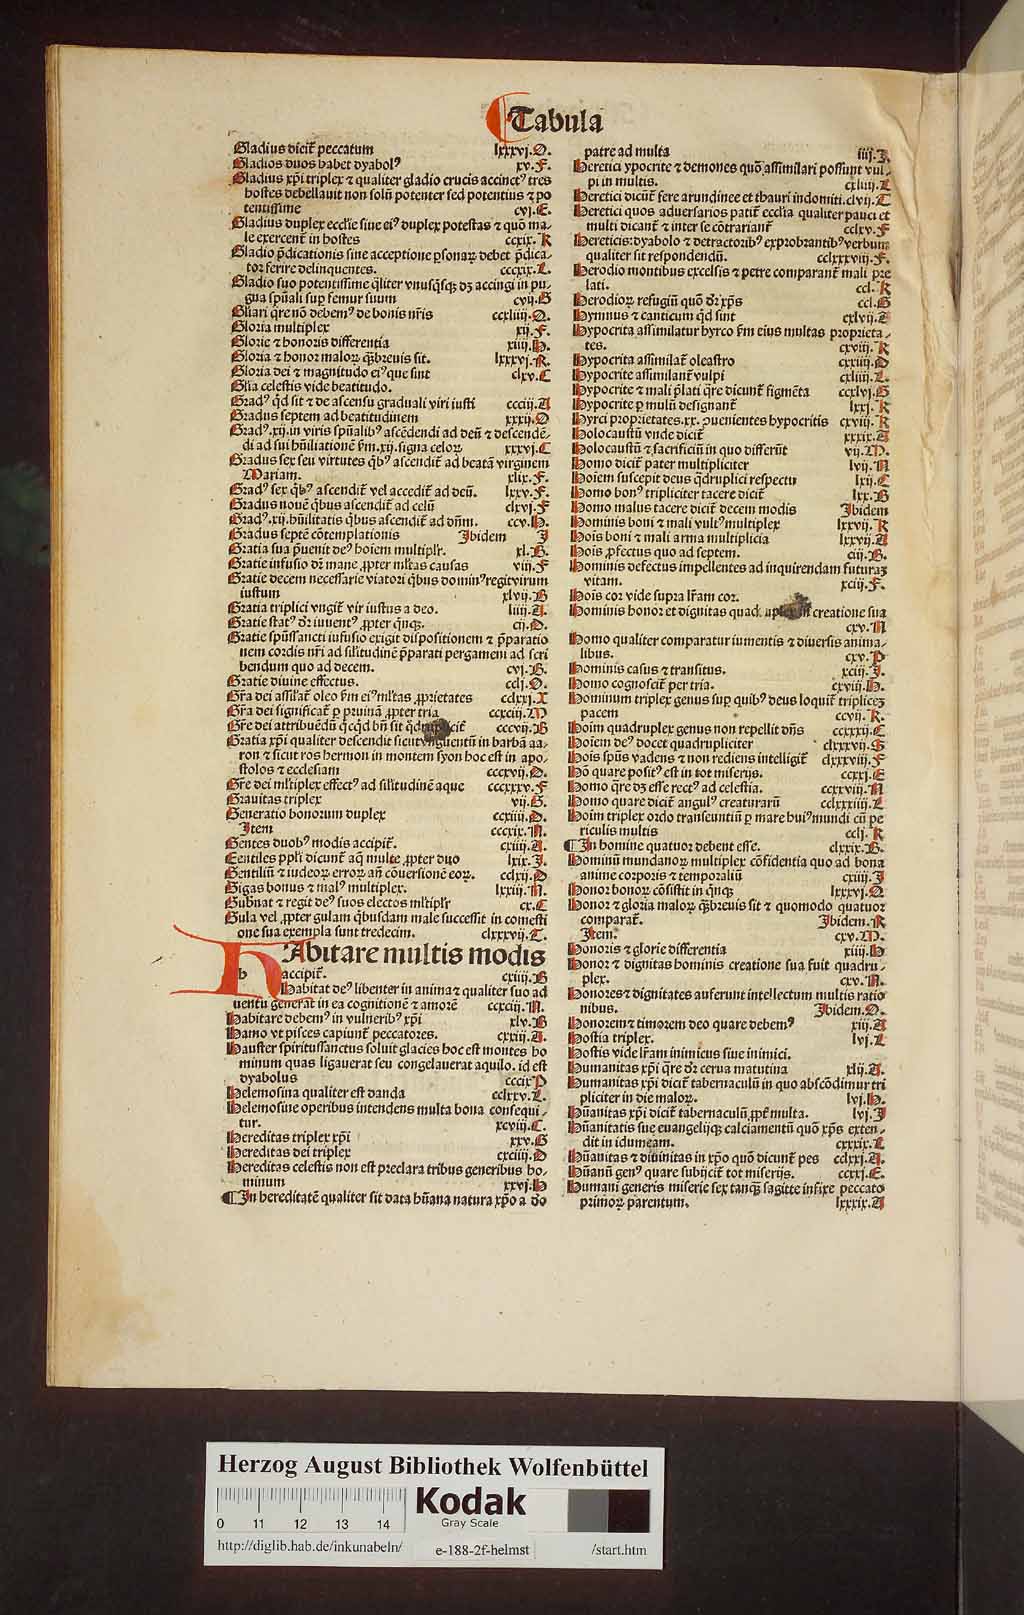 Tabula
Gladius dicit̃ peccatum lxxxvj.O.
Gladios duos habet dyabolꝰ xv.F.
Gladius xp̃i triplex ⁊ qualiter gladio crucis accinctꝰ tres
hostes debellauit non solũ potenter sed potentius ⁊ po
tentissime cvj.E.
Gladius duplex eccłie siue eiꝰ duplex potestas ⁊ quõ ma⸗
le exercent̃ in hostes ccxix.K
Gladio p̃dicationis sine acceptione ꝑsonaꝝ debet p̃dica⸗
tor ferire delinquentes. cccxix.L.
Gladio suo potentissime q̃liter vnusq̃sqꝫ dꝫ accingi in pu⸗
gua sp̃uali suꝑ femur suum cvij.G
Gl̃iari q̃re nõ debemꝰ de bonis nr̃is ccxliiij.O.
Gloria multiplex xij.F.
Glorie ⁊ honoris differentia xiiij.H.
Gloria ⁊ honor maloꝝ q̃ꝫbreuis sit. lxxxvj.R.
Gloria dei ⁊ magnitudo eiꝰ que sint clxv.C
Gl̃ia celestis vide beatitudo.
Gradꝰ q̃d sit ⁊ de ascensu graduali viri iusti ccciij.A
Gradus septem ad beatitudinem xxxij.O
Gradꝰ.xij.in viris sp̃ualibꝰ ascẽdendi ad deũ ⁊ descendẽ⸗
di ad sui hũiliationẽ ẜm.xij.signa celoꝝ xxxvj.C
Gradus sex seu virtutes q̃bꝰ ascendit̃ ad beatã virginem
Mariam. xlix.F.
Gradꝰ sex q̃bꝰ ascendit̃ vel accedit̃ ad deũ. lxxv.F.
Gradus nouẽ q̃bus ascendit̃ ad celũ clxvj.F
Gradꝰ.xij.hũilitatis q̃bus ascendit̃ ad dñm. ccv.H.
Gradus septẽ cõtemplationis Jbidem J
Gratia sua p̃uenit deꝰ hoiem multipłr. xl.B.
Gratie infusio dr̃ mane ꝓpter młtas causas viij.F
Gratie decem necessarie viatori q̃bus dominꝰregitvirum
iustum xlvij.B
Gratia triplici vngit̃ vir iustus a deo. liiij.A.
Gratie statꝰ dr̃ iuuentꝰ ꝓpter q̃nqꝫ. cij.O.
Gratie spũssancti iufusio exigit dispositionem ⁊ p̃paratio
nem cordis nr̃i ad siłitudinẽ p̃parati pergameni ad scri
bendum quo ad decem. cvj.B.
Gratie diuine effectus. cclj.O.
Gr̃a dei assiłat̃ oleo ẜm eiꝰ młtas ꝓprietates cclxxj.X
Gr̃a dei significat̃ ꝑ pruinã ꝓpter tria ccxciij.M
Gr̃e dei attribuẽdũ q̃cq̃d bñ sit cccvij.B
Gratia xp̃i qualiter descendit sicut vnguentũ in barbã aa⸗
ron ⁊ sicut ros hermon in montem syon hoc est in apo⸗
stolos ⁊ ecclesiam cccxvij.O.
Gr̃e dei młtiplex effectꝰ ad siłitudinẽ aque cccxxxv.F
Grauitas triplex vij.G.
Generatio bonorum duplex ccxiiij.O.
Jtem cccxix.N.
Gentes duobꝰ modis accipit̃. cxiij.A.
Eentiles ppłi dicunt̃ aq̃ multe ꝓpter duo lxix.J.
Gentiliũ ⁊ iudeoꝝ erroꝝ añ cõuersionẽ eoꝝ. cclxij.O
Gigas bonus ⁊ malꝰ multiplex. lxxiij.N.
Gubnat ⁊ regit deꝰ suos electos młtipłr cx.C
Gula vel ꝓpter gulam q̃busdam male successit in comesti
one sua exempla sunt tredecim. clxxxvij.T.
HAbitare multis modis
h accipit̃. cxiiij.B
Habitat deꝰ libenter in anima ⁊ qualiter suo ad
uentu generat in ea cognitionẽ ⁊ amorẽ ccxciij.N.
Habitare debemꝰ in vulneribꝰ xp̃i xlv.B
Hamo vt pisces capiunt̃ peccatores. cxxiij.A.
Hauster spiritussanctus soluit glacies hoc est montes ho
minum quas ligauerat seu congelauerat aquilo. id est
dyabolus cccix P
Helemosina qualiter est danda cclxxv.L.
Helemosine operibus intendens multa bona consequi⸗
tur. xcviij.C.
Hereditas triplex xp̃i xxv.G
Hereditas dei triplex cxciiij.D
Hereditas celestis non est preclara tribus generibus ho⸗
minum xxvj.H
¶Jn hereditatẽ qualiter sit data hũana natura xp̃o a do
patre ad multa iiij.J.
Heretici ypocrite ⁊ demones quõ assimilari possunt vul⸗
pi in multis. cxliij.L
Heretici dicũt̃ fere arundinee et thauri indomiti.clvij.T
Heretici quos aduersarios patit̃ eccłia qualiter pauci et
multi dicant̃ ⁊ inter se cõtrariant̃ cclxv.F
Hereticis: dyabolo ⁊ detractoribꝰ exprobrantibꝰverbum
qualiter sit respondendũ. cclxxxviij.F.
Herodio montibus excelsis ⁊ petre comparant̃ mali pre
lati. ccl.K
Herodioꝝ refugiũ quõ dr̃ xp̃s ccl.G
Hymnus ⁊ canticum q̃d sint cxlvij.T
Hypocrita assimilatur hyrco ẜm eius multas proprieta⸗
tes. cxviij.K
Hypocrita assimilat̃ oleastro cxxiiij.O
Hypocrite assimilant̃ vulpi cxliiij.L.
Hypocrite ⁊ mali p̃lati q̃re dicunt̃ figmẽta ccxlvj.G
Hypocrite ꝑ mulũ designant̃ lxxj.K
Hyrci proprietates.xx.ꝯuenientes hypocritis cxviij.K
Holocaustũ vnde dicit̃ xxxix.T
Holocaustũ ⁊ sacrificiũ in quo differũt vij.M.
Homo dicit̃ pater multipliciter lvij.N
Hoiem suscepit deus q̃druplici respectu lxij.C
Homo bonꝰ tripliciter tacere dicit̃ lxx.B
Homo malus tacere dicit̃ decem modis Jbidem
Hominis boni ⁊ mali vultꝰmultiplex lxxvij.K
Hois boni ⁊ mali arma multiplicia lxxvij.A
Hois ꝓfectus quo ad septem. ciij.B.
Hominis defectus impellentes ad inquirendam futuraꝫ
vitam. xciij.F.
Hois cor vide supra lr̃am cor.
Hominis honor et dignitas creatione sua
cxv.N
Homo qualiter comparatur iumentis ⁊ diuersis anima⸗
libus. cxv.P
Hominis casus ⁊ transitus. xciij.J.
Homo cognoscit̃ per tria. cxviij.H.
Hominum triplex genus suꝑ quibꝰ deus loquit̃ tripliceꝫ
pacem ccvij.K.
Hoim quadruplex genus non repellit dñs ccxxxij.C
Hoiem deꝰ docet quadrupliciter clxxxvij.S
Hois spũs vadens ⁊ non rediens intelligit̃ clxxxviij.F
Hõ quare positꝰ est in tot miserijs. ccxxj.E
Homo q̃re dꝫ esse rectꝰ ad celestia. ccxxviij.N
Homo quare dicit̃ angulꝰ creaturarũ cclxxxiiij.L
Hoim triplex ordo transeuntiũ ꝑ mare huiꝰmundi cũ pe
riculis multis cclj.K
¶Jn homine quatuor debent esse. clxxix.B.
Hominũ mundanoꝝ multiplex cõfidentia quo ad bona
anime corporis ⁊ temporaliũ cxiiij.J
Honor bonoꝝ cõsistit in q̃nqꝫ lxxxvj.Q
Honor ⁊ gloria maloꝝ q̃ꝫbreuis sit ⁊ quomodo quatuor
comparat̃. Jbidem.R
Jtem. cxv.M.
Honoris ⁊ glorie differentia xiiij.H
Honor ⁊ dignitas hominis creatione sua fuit quadru⸗
plex. cxv.N.
Honores⁊ dignitates auferunt intellectum multis ratio
nibus. Jbidem.O.
Honorem⁊ timorem deo quare debemꝰ xiij.A
Hostia triplex. lvj.L
Hostis vide lr̃am inimicus siue inimici.
Humanitas xp̃i q̃re dr̃ cerua matutina xlij.A.
Humanitas xp̃i dicit̃ tabernaculũ in quo abscõdimur tri
pliciter in die maloꝝ. lvj.H.
Hũanitas xp̃i dicit̃ tabernaculũ ꝓpt̃ multa. lvj.J
Hũanitatis sue euangelijqꝫ calciamentũ quõ xp̃s exten⸗
dit in idumeam. cxxxix.L
Hũanitas ⁊ diuinitas in xp̃o quõ dicunt̃ pes cclxxj.A.
Hũanũ genꝰ quare subijcit̃ tot miserijs. ccxxj.E.
Humani generis miserie sex tanqꝫ sagitte infixe peccato
primoꝝ parentum. lxxxix.A
Herzog August Bibliothek Wolfenbüttel
0 11 12 13 14
Kodak
Gray Scale
http://diglib.hab.de/inkunabeln/ e-188-2f-helmst /start.htm